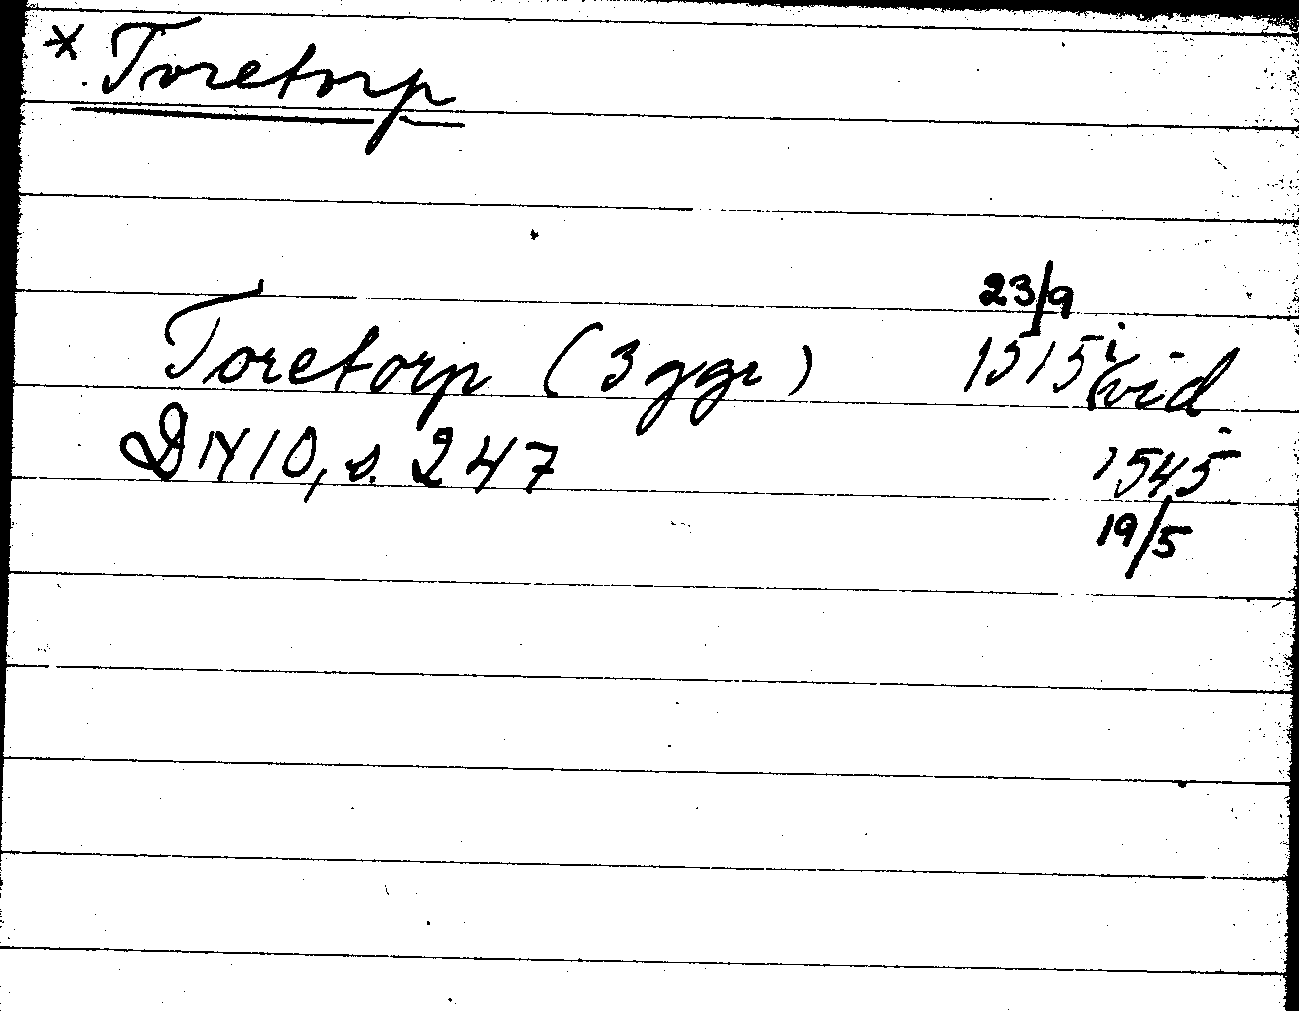 * Toretorp
23/9
Toretorp (3 ggr) 1515 i vid
DN 10, s. 247 1545
19/5